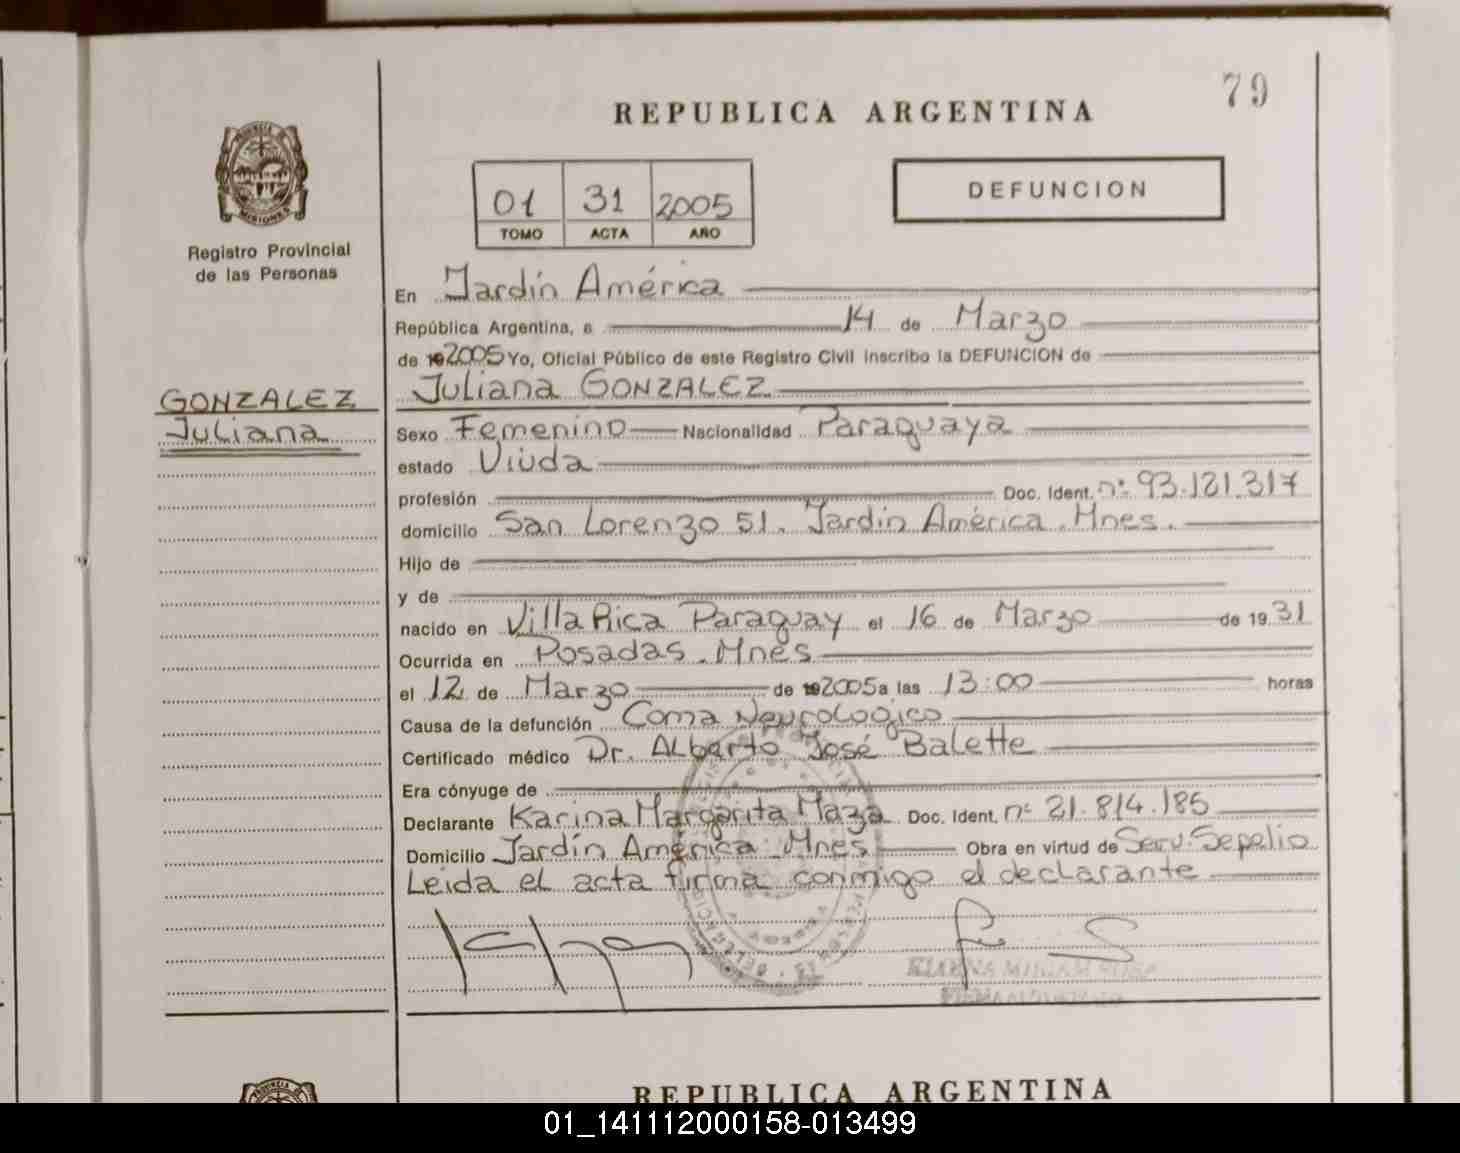 79
REPUBLICA ARGENTINA
DEFUNCION
01 31 2005
TOMO ACTA AÑO
PROVINCIA DE
MISIONES
Registro Provincial
de las Personas
En Jardín América
República Argentina, a 14 de Marzo
de 19 2005 Yo, Oficial Público de este Registro Civil inscribo la DEFUNCION de
GONZALEZ
Juliana
Juliana GONZALEZ
Sexo Femenino Nacionalidad Paraguaya
estado Viuda
profesión Doc. Ident. nº 93.121.317
domicilio San Lorenzo 51. Jardín América. Mnes.
Hijo de
y de
nacido en Villa Rica Paraguay el 16 de Marzo de 19 31
Ocurrida en Posadas. Mnes
el 12 de Marzo de 19 2005 a las 13:00 horas
Causa de la defunción Coma Neurologico
Certificado médico Dr. Alberto José Balette
Era cónyuge de
Declarante Karina Margarita Maza Doc. Ident. nº 21.814.185
Domicilio Jardín América Mnes Obra en virtud de Serv. Sepelio
Leida el acta firma conmigo el declarante
REPUBLICA ARGENTINA
01_141112000158-013499